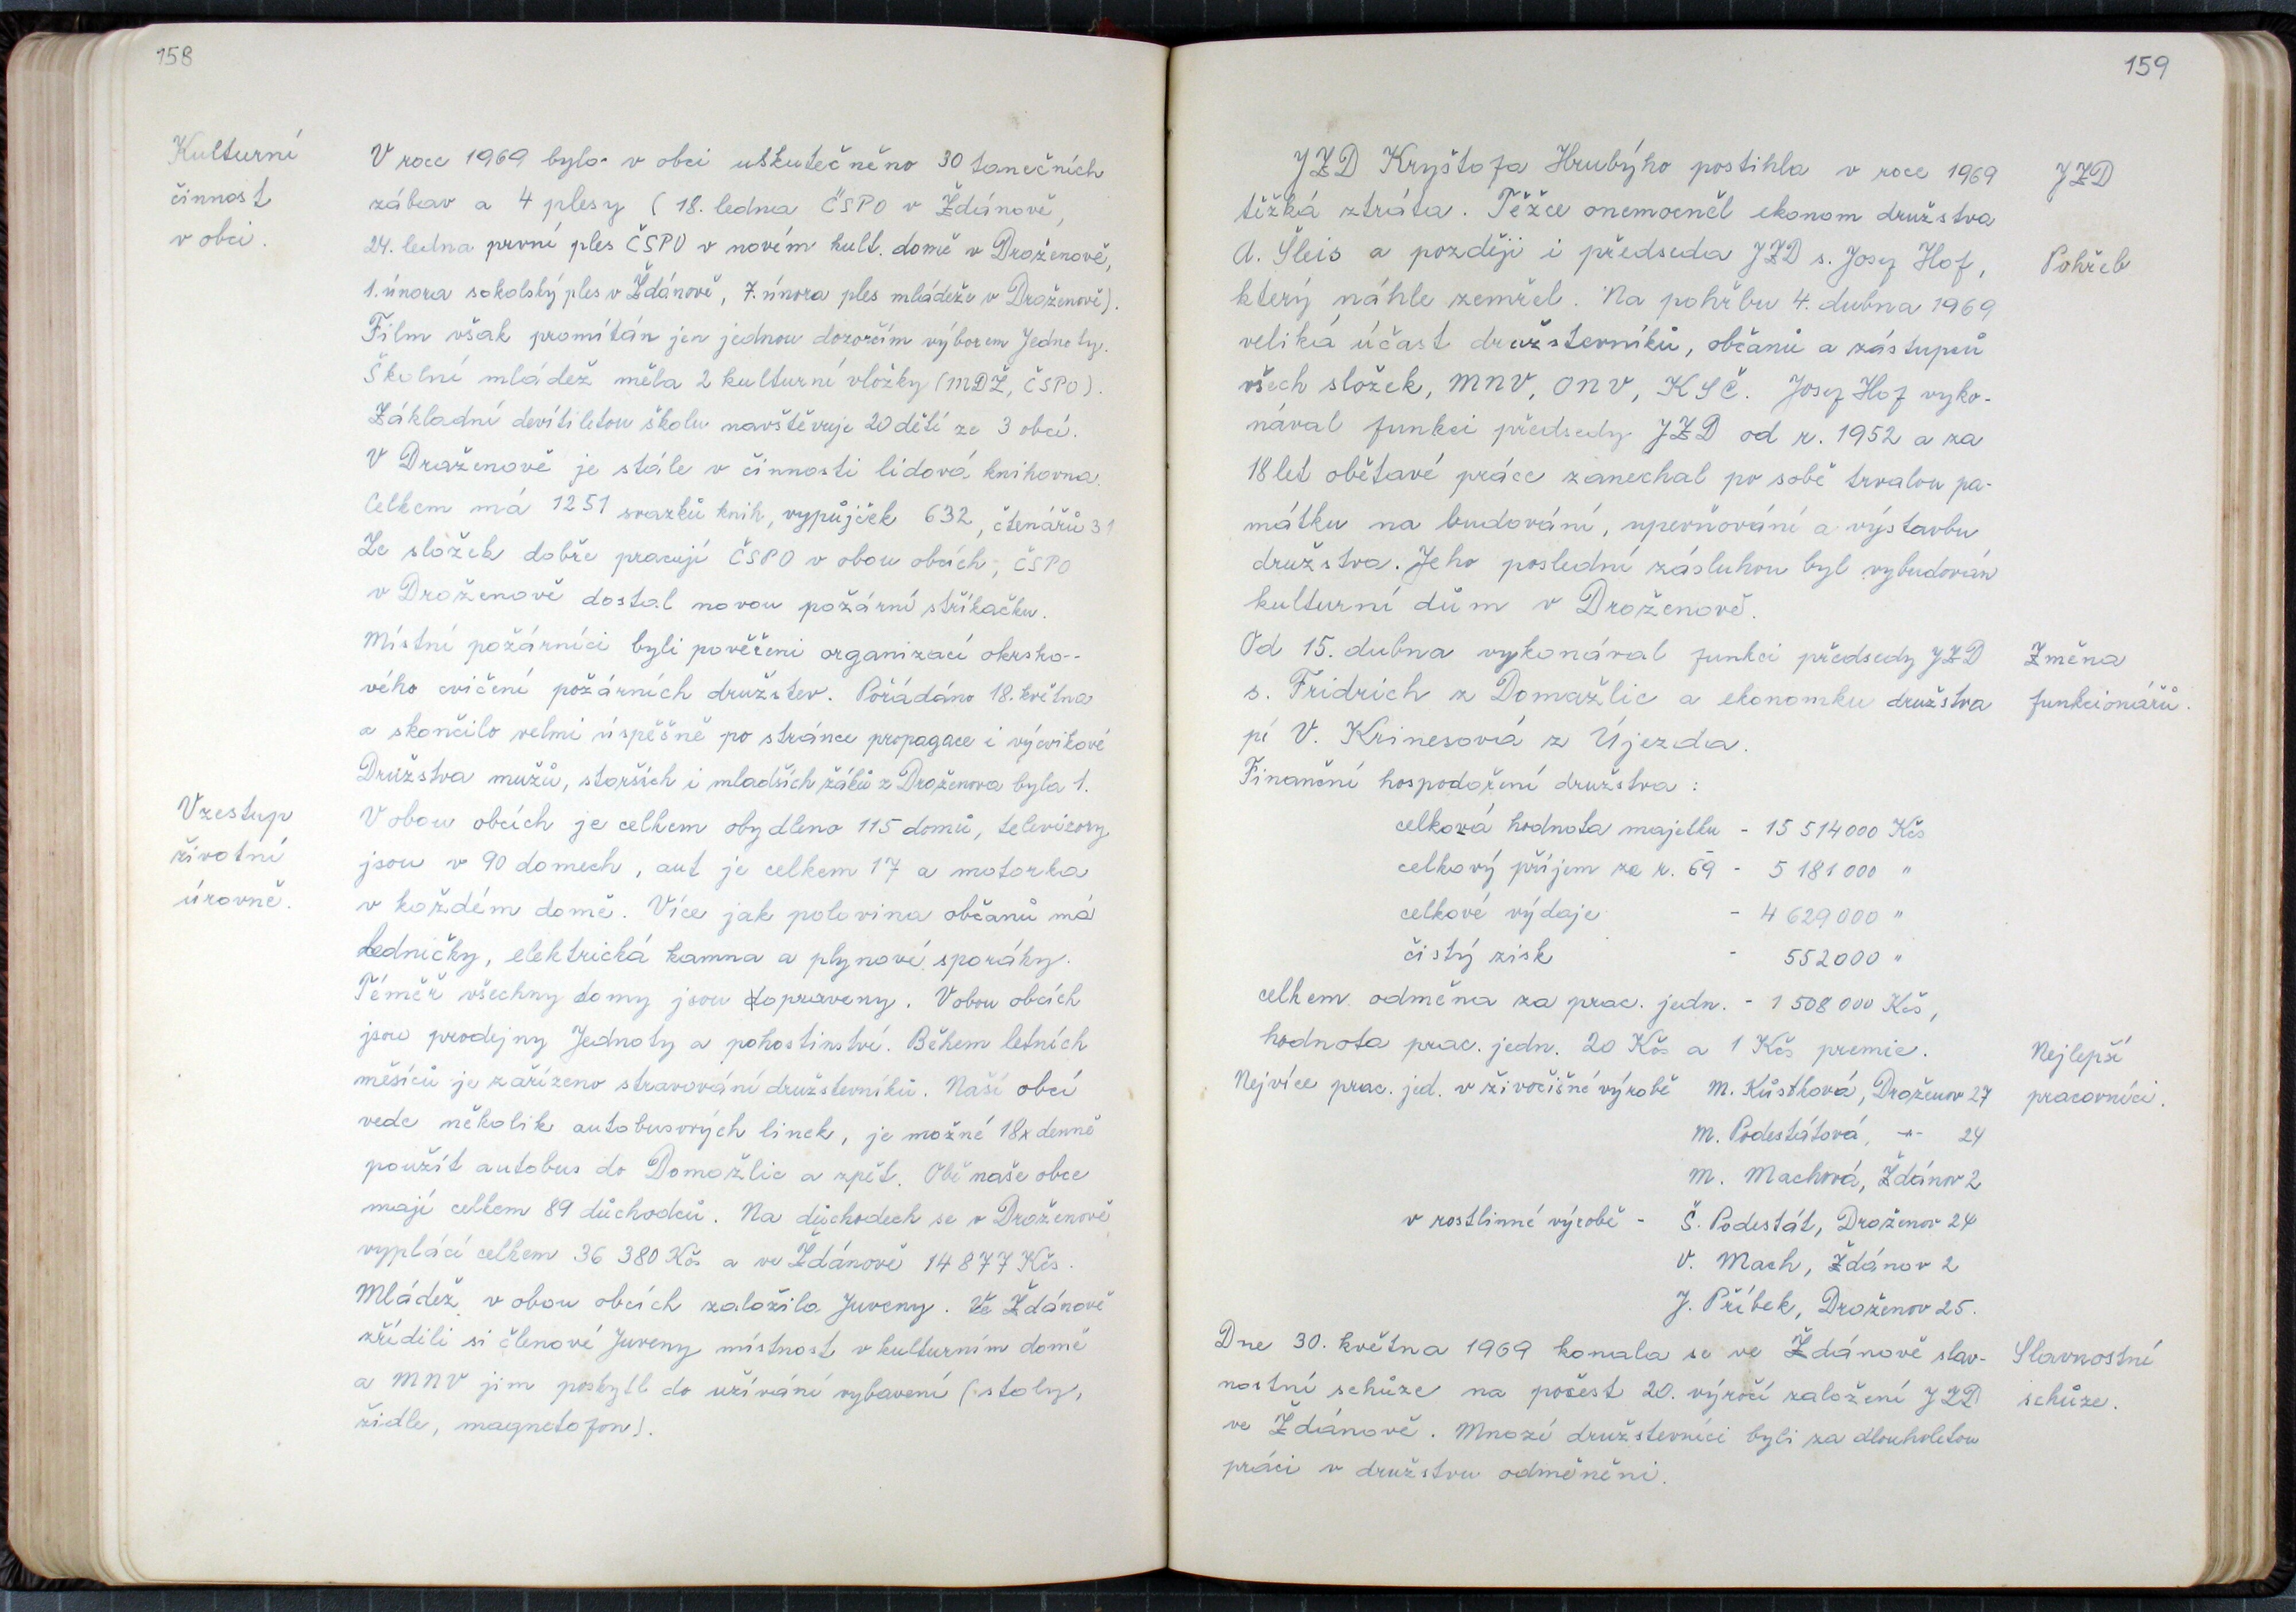 158
Kulturní
činnost
v obci.
V roce 1969 bylo v obci uskutečněno 30 tanečních
zábav a 4 plesy ( 18. ledna ČSPO v Ždánově,
24. ledna první ples ČSPO v novém kult. domě v Draženově,
1. února sokolský ples v Ždánově, 7. února ples mládeže v Draženově).
Film však promítán jen jednou dozorčím výborem Jednoty.
Školní mládež měla 2 kulturní vložky (MDŽ, ČSPO).
Základní devítiletou školu navštěvuje 20 dětí ze 3 obcí.
V Draženově je stále v činnosti lidová knihovna.
Celkem má 1251 svazků knih, vypůjček 632, čtenářů 31
Ze složek dobře pracují ČSPO v obou obcích, ČSPO
v Draženově dostal novou požární stříkačku.
Místní požárníci byli pověřeni organizací okrsko-
vého cvičení požárních družstev. Pořádáno 18. května
a skončilo velmi úspěšně po stránce propagace i výcvikové
Družstva mužů, starších i mladších žáků z Draženova byla 1.
Vzestup
životní
úrovně.
V obou obcích je celkem obydleno 115 domů, televizory
jsou v 90 domech, aut je celkem 17 a motorka
v každém domě. Více jak polovina občanů má
ledničky, elektrická kamna a plynové sporáky.
Téměř všechny domy jsou opraveny. V obou obcích
jsou prodejny Jednoty a pohostinství. Během letních
měsíců je zařízeno stravování družstevníků. Naší obcí
vede několik autobusových linek, je možné 18x denně
použít autobus do Domažlic a zpět. Obě naše obce
mají celkem 89 důchodců. Na důchodech se v Draženově
vyplácí celkem 36 380 Kčs a ve Ždánově 14 877 Kčs.
Mládež v obou obcích založila Juveny. Ve Ždánově
zřídili si členové Juveny místnost v kulturním domě
a MNV jim poskytl do užívání vybavení (stoly,
židle, magnetofon).
159
JZD Kryštofa Hrubýho postihla v roce 1969
těžká ztráta. Těžce onemocněl ekonom družstva
A. Šleis a později i předseda JZD s. Josef Hof,
který náhle zemřel. Na pohřbu 4. dubna 1969
veliká účast družstevníků, občanů a zástupců
všech složek, MNV, ONV, KSČ. Josef Hof vyko-
nával funkci předsedy JZD od r. 1952 a za
18 let obětavé práce zanechal po sobě trvalou pa-
mátku na budování, upevňování a výstavbu
družstva. Jeho poslední zásluhou byl vybudován
kulturní dům v Draženově.
JZD
Pohřeb
Od 15. dubna vykonával funkci předsedy JZD
s. Fridrich z Domažlic a ekonomku družstva
pí V. Krinesová z Újezda.
Změna
funkcionářů.
Finanční hospodaření družstva :
celková hodnota majetku - 15 514 000 Kčs
celkový příjem za r. 69 - 5 181 000 "
celkové výdaje - 4 629 000 "
čistý zisk - 552 000 "
celkem odměna za prac. jedn. - 1 508 000 Kčs,
hodnota prac. jedn. 20 Kčs a 1 Kčs premie.
Nejlepší
pracovníci.
Nejvíce prac. jed. v živočišné výrobě M. Kůstková, Draženov 27
M. Podestátová, -"- 24
M. Machová, Ždánov 2
v rostlinné výrobě - Š. Podestát, Draženov 24
V. Mach, Ždánov 2
J. Příbek, Draženov 25.
Dne 30. května 1969 konala se ve Ždánově slav-
nostní schůze na počest 20. výročí založení JZD
ve Ždánově. Mnozí družstevníci byli za dlouholetou
práci v družstvu odměněni.
Slavnostní
schůze.